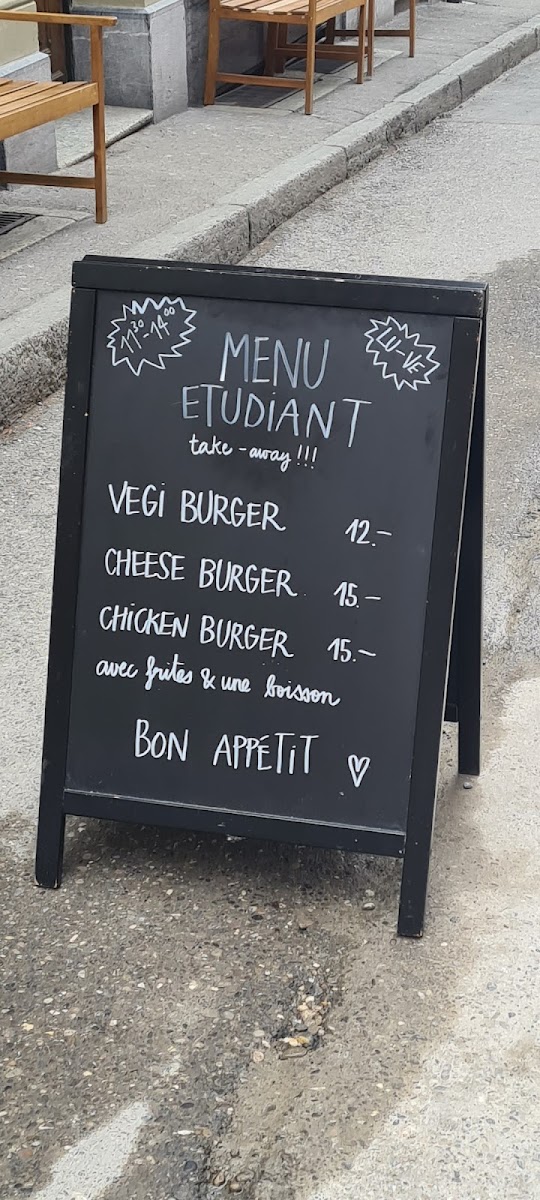 11³⁰-14⁰⁰
LU-VE
MENU
ETUDIANT
take-away!!!
VEGI BURGER 12.-
CHEESE BURGER 15.-
CHICKEN BURGER 15.-
avec frites & une boisson
BON APPÉTIT ♡